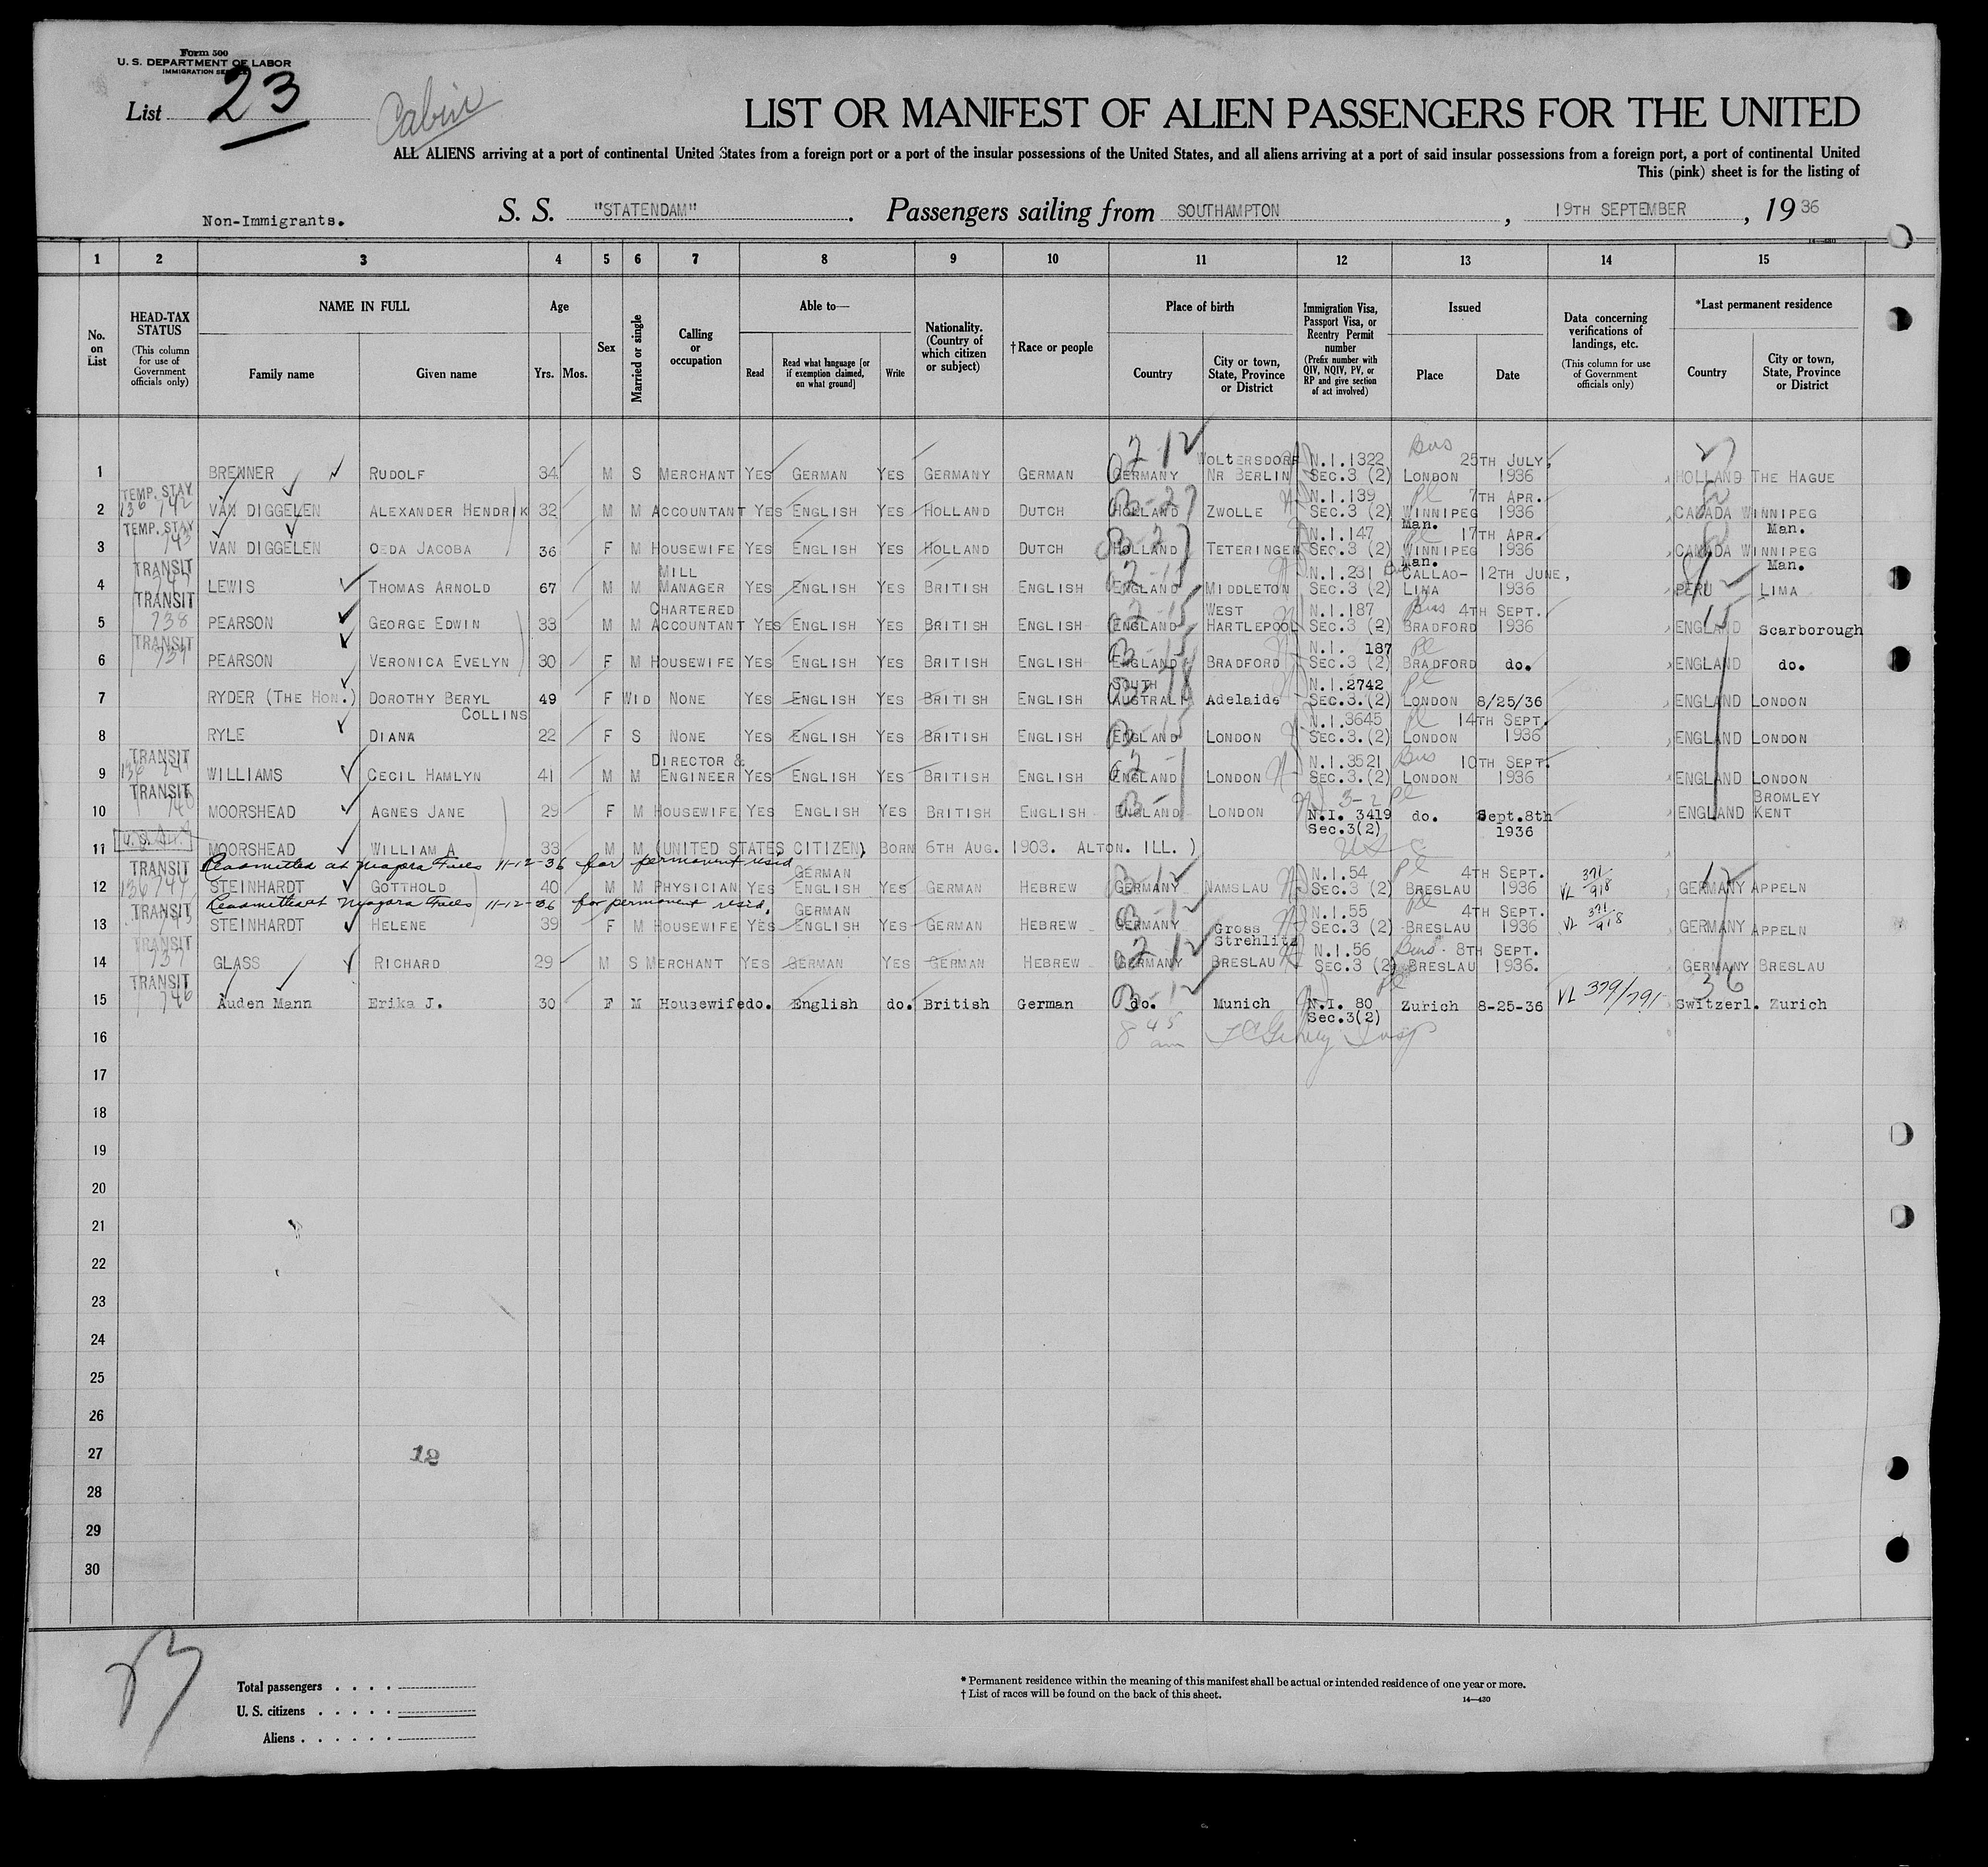 Form 500
U. S. DEPARTMENT OF LABOR
IMMIGRATION SERVICE
List 23
Cabin
LIST OR MANIFEST OF ALIEN PASSENGERS FOR THE UNITED
ALL ALIENS arriving at a port of continental United States from a foreign port or a port of the insular possessions of the United States, and all aliens arriving at a port of said insular possessions from a foreign port, a port of continental United
This (pink) sheet is for the listing of
Non-Immigrants. S. S. "STATENDAM". Passengers sailing from SOUTHAMPTON, 19TH SEPTEMBER, 19 36
14—430
1 2 3 4 5 6 7 8 9 10 11 12 13 14 15
No. on List
HEAD-TAX STATUS (This column for use of Government officials only)
NAME IN FULL Family name Given name
Age Yrs. Mos.
Sex
Married or single
Calling or occupation
Able to— Read Read what language [or if exemption claimed, on what ground] Write
Nationality. (Country of which citizen or subject)
†Race or people
Place of birth Country City or town, State, Province or District
Immigration Visa, Passport Visa, or Reentry Permit number (Prefix number with QIV, NQIV, PV, or RP and give section of act involved)
Issued Place Date
Data concerning verifications of landings, etc. (This column for use of Government officials only)
*Last permanent residence Country City or town, State, Province or District
1 BRENNER RUDOLF 34 M S MERCHANT YES GERMAN YES GERMANY GERMAN 2-12 GERMANY WOLTERSDORF NR BERLIN N.I.1322 SEC.3 (2) Bus LONDON 25TH JULY, 1936 HOLLAND THE HAGUE
2 TEMP. STAY 136 742 VAN DIGGELEN ALEXANDER HENDRIK 32 M M ACCOUNTANT YES ENGLISH YES HOLLAND DUTCH HOLLAND ZWOLLE N.I.139 SEC.3 (2) Pl WINNIPEG Man. 7TH APR. 1936 CANADA WINNIPEG Man.
3 TEMP. STAY 743 VAN DIGGELEN OEDA JACOBA 36 F M HOUSEWIFE YES ENGLISH YES HOLLAND DUTCH HOLLAND TETERINGEN N.I.147 SEC.3 (2) Pl WINNIPEG Man. 17TH APR. 1936 CANADA WINNIPEG Man.
4 TRANSIT LEWIS THOMAS ARNOLD 67 M M MILL MANAGER YES ENGLISH YES BRITISH ENGLISH 2-15 ENGLAND MIDDLETON N.I.231 SEC.3 (2) Bus CALLAO- LIMA 12TH JUNE, 1936 PERU LIMA
5 TRANSIT 738 PEARSON GEORGE EDWIN 33 M M CHARTERED ACCOUNTANT YES ENGLISH YES BRITISH ENGLISH 2-15 ENGLAND WEST HARTLEPOOL N.I.187 SEC.3 (2) Bus BRADFORD 4TH SEPT. 1936 15 ENGLAND Scarborough
6 TRANSIT 739 PEARSON VERONICA EVELYN 30 F M HOUSEWIFE YES ENGLISH YES BRITISH ENGLISH B-15 ENGLAND BRADFORD N.I. 187 SEC.3 (2) Pl BRADFORD do. ENGLAND do.
7 RYDER (THE HON.) DOROTHY BERYL 49 F WID NONE YES ENGLISH YES BRITISH ENGLISH SOUTH AUSTRALIA Adelaide N.I.2742 SEC.3.(2) Pl LONDON 8/25/36 ENGLAND LONDON
8 RYLE DIANA COLLINS 22 F S NONE YES ENGLISH YES BRITISH ENGLISH B-15 ENGLAND LONDON N.I.3645 SEC.3.(2) Pl LONDON 14TH SEPT. 1936 ENGLAND LONDON
9 TRANSIT 136 WILLIAMS CECIL HAMLYN 41 M M DIRECTOR & ENGINEER YES ENGLISH YES BRITISH ENGLISH 2-1 ENGLAND LONDON N.I.3521 SEC.3.(2) Bus LONDON 10TH SEPT. 1936 ENGLAND LONDON
10 TRANSIT 740 MOORSHEAD AGNES JANE 29 F M HOUSEWIFE YES ENGLISH YES BRITISH ENGLISH B-1 ENGLAND LONDON 3-2 Pl N.I. 3419 Sec.3(2) do. Sept.8th 1936 ENGLAND BROMLEY KENT
11 MOORSHEAD WILLIAM A 33 M M (UNITED STATES CITIZEN). BORN 6TH AUG. 1903. ALTON. ILL. ) USC
Readmitted at Niagara Falls 11-12-36 for permanent resid
12 TRANSIT 136 744 STEINHARDT GOTTHOLD 40 M M PHYSICIAN YES GERMAN ENGLISH YES GERMAN HEBREW B-12 GERMANY NAMSLAU N.I.54 SEC.3 (2) Pl BRESLAU 4TH SEPT. 1936 VL 371/918 GERMANY APPELN
Readmitted at Niagara Falls 11-12-36 for permanent resid,
13 TRANSIT 745 STEINHARDT HELENE 39 F M HOUSEWIFE YES GERMAN ENGLISH YES GERMAN HEBREW B-12 GERMANY Gross Strehlitz N.I.55 SEC.3 (2) Pl BRESLAU 4TH SEPT. 1936 VL 371/918 GERMANY APPELN
14 TRANSIT 737 GLASS RICHARD 29 M S MERCHANT YES GERMAN YES GERMAN HEBREW 2-12 GERMANY BRESLAU N.I.56 SEC.3 (2) Bus. BRESLAU 8TH SEPT. 1936. GERMANY BRESLAU
15 TRANSIT 746 Auden Mann Erika J. 30 F M Housewife do. English do. British German B-12 do. Munich N.I. 80 Sec.3(2) Pl Zurich 8-25-36 VL 379/791 36 Switzerl. Zurich
16 8 45 am
17
18
19
20
21
22
23
24
25
26
27 12
28
29
30
Total passengers
U. S. citizens
Aliens
* Permanent residence within the meaning of this manifest shall be actual or intended residence of one year or more.
† List of races will be found on the back of this sheet.
14—430